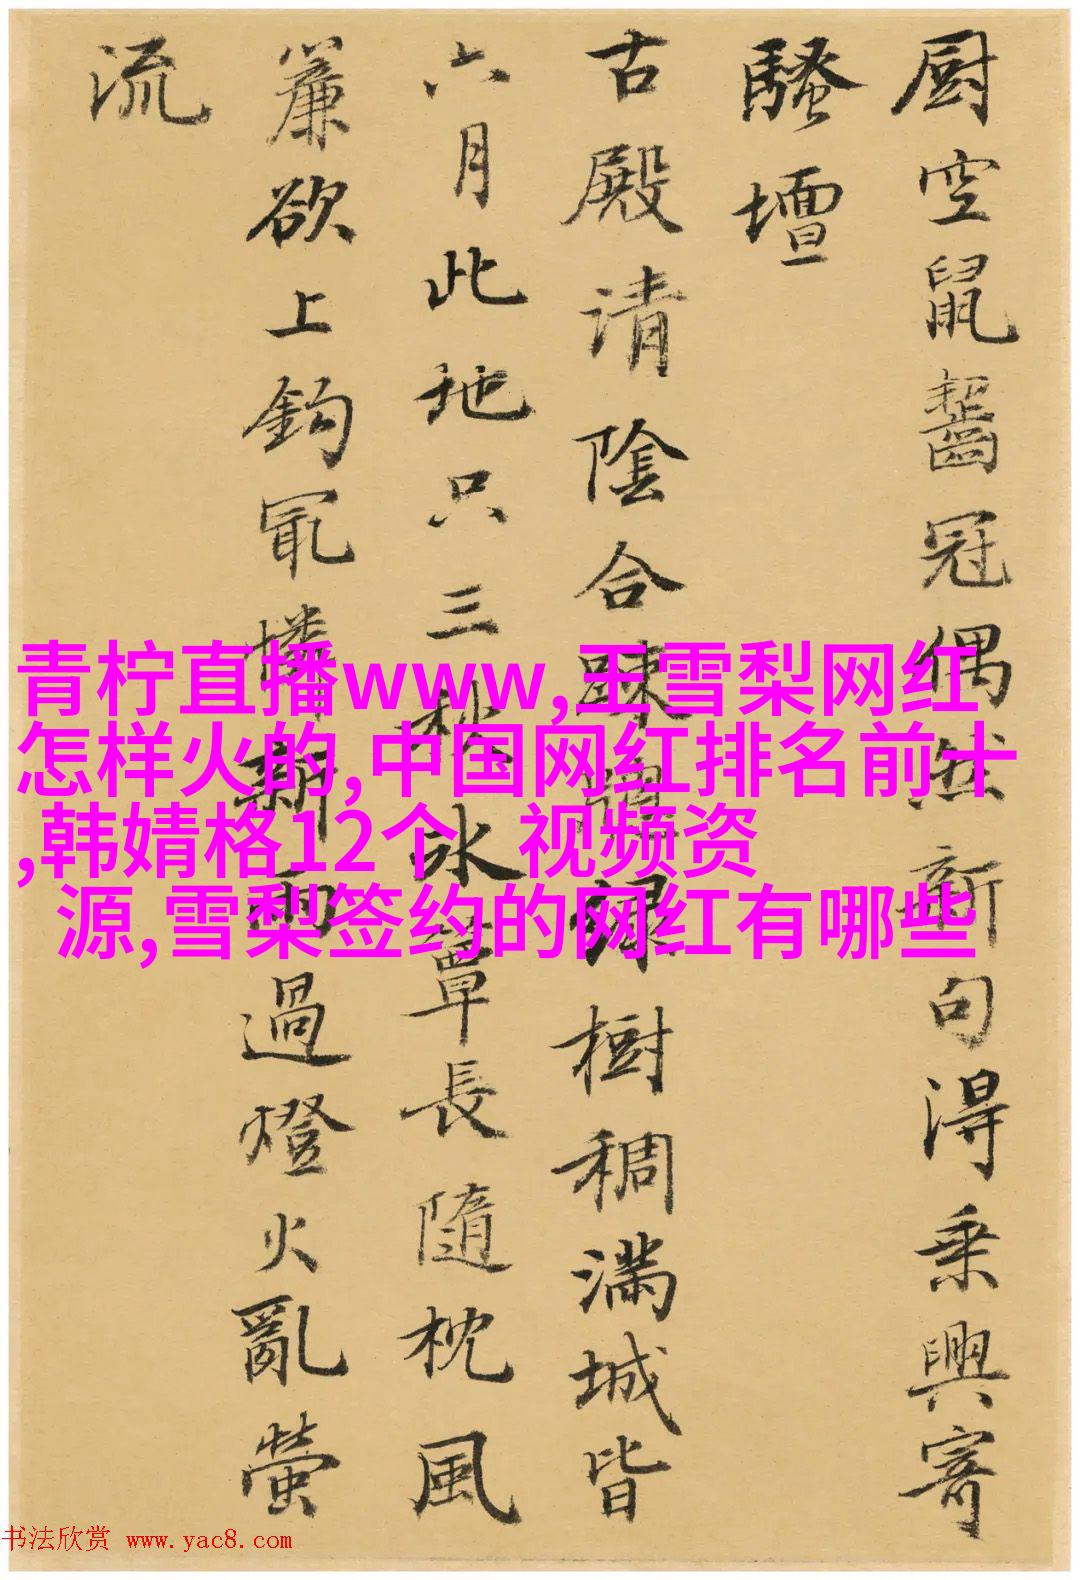 厨空鼠齧冠偶然新句得乘興寄
騷壇
古殿清陰合疎簷緑樹稠滿城皆
六月此地只三秋氷簟長隨枕風
簾欲上鈎冣憐新雨過燈火亂螢
流
青柠直播www,王雪梨网红
怎样火的,中国网红排名前十
,韩婧格12个 视频资
源,雪梨签约的网红有哪些
书法欣赏 www.yac8.com